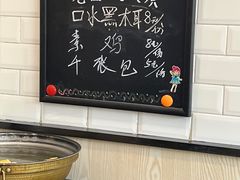 口水黑木耳8元/份
素鸡 8元/份
千张包 5元/份